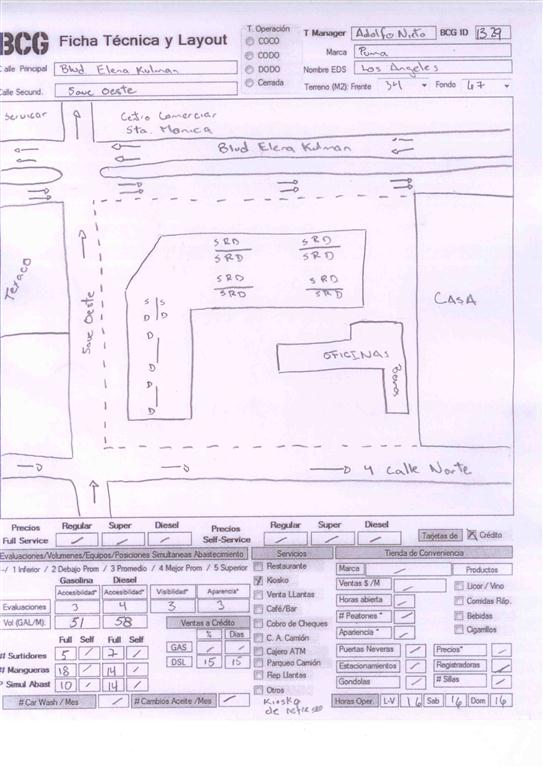 BCG Ficha Técnica y Layout
T. Operación
COCO
CODO
DODO
Cerrada
T Manager Adolfo Nieto BCG ID 1339
Marca Puma
Nombre EDS Los Angeles
Terreno (M2): Frente 54 Fondo 67
Calle Principal Blvd Elena Kulman
Calle Secund. 5ave Oeste
Servicar
Cetro Comerciar
Sta. Monica
Blvd Elena Kulman
Texaco
5ave Oeste
SRD SRD
SRD SRD
SRD SRD
SRD SRD
S S
D D
D
D
D
CASA
OFICINAS
4 Calle Norte
Precios Regular Super Diesel Precios Regular Super Diesel
Full Service Self-Service
Tarjetas de Crédito
Evaluaciones/Volumenes/Equipos/Posiciones Simultaneas Abastecimiento
-/ 1 Inferior / 2 Debajo Prom / 3 Promedio / 4 Mejor Prom / 5 Superior
Gasolina Diesel
Accesibilidad* Accesibilidad* Visibilidad* Aparencia*
Evaluaciones 3 4 3 3
Vol (GAL/M): 51 58
Ventas a Crédito
% Dias
GAS
DSL 15 15
Full Self Full Self
# Surtidores 5 7
# Mangueras 18 14
* Simul Abast 10 14
# Car Wash / Mes
# Cambios Aceite /Mes
Servicios
Restaurante
Kiosko
Venta LLantas
Café/Bar
Cobro de Cheques
C. A. Camión
Cajero ATM
Parqueo Camión
Rep Llantas
Otros
Kiosko
de
Tienda de Conveniencia
Marca Productos
Ventas $ /M
Horas abierta
# Peatones *
Apariencia *
Licor / Vino
Comidas Ráp.
Bebidas
Cigarrilos
Puertas Neveras Precios*
Estacionamientos Registradoras
Gondolas # Sillas
Horas Oper. L-V 16 Sab 16 Dom 16